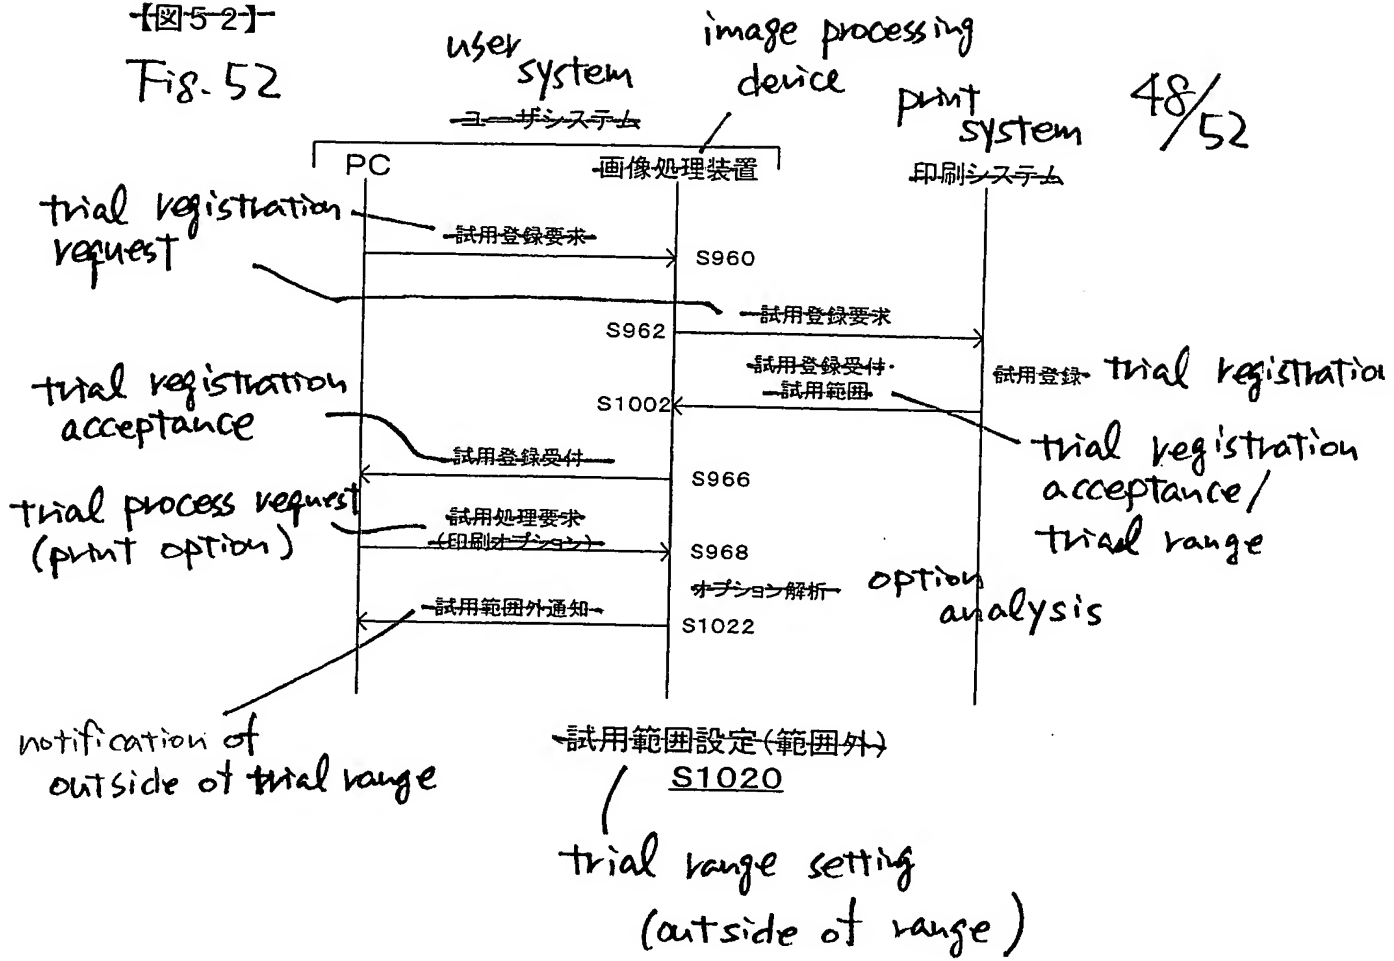 【図52】
Fig. 52
user
system
ユーザシステム
image processing
device
print
system
48/52
PC
画像処理装置
印刷システム
trial registration
request
試用登録要求
S960
S962
試用登録要求
試用登録受付・
試用範囲
試用登録
trial registration
S1002
trial registration
acceptance
試用登録受付
S966
trial registration
acceptance/
trial range
trial process request
(print option)
試用処理要求
(印刷オプション)
S968
オプション解析
option
analysis
試用範囲外通知
S1022
notification of
outside of trial range
試用範囲設定(範囲外)
S1020
trial range setting
(outside of range)